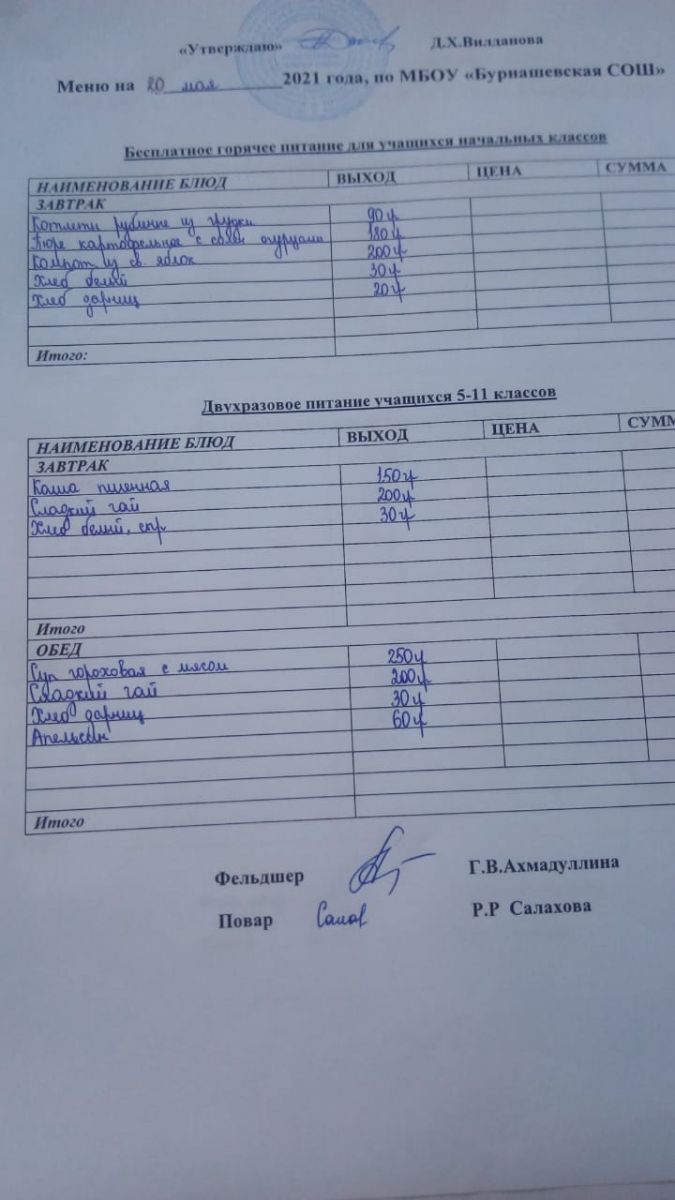 «Утверждаю» Д.Х.Вилданова
Меню на 20 мая 2021 года, по МБОУ «Бурнашевская СОШ»
Бесплатное горячее питание для учащихся начальных классов
НАИМЕНОВАНИЕ БЛЮД ВЫХОД ЦЕНА СУММА
ЗАВТРАК
Котлеты рубление из грудки 90г
Пюре картофельное с солен огурцами 180г
Компот из св. яблок 200г
Хлеб белый 30г
Хлеб дарниц 20г
Итого:
Двухразовое питание учащихся 5-11 классов
НАИМЕНОВАНИЕ БЛЮД ВЫХОД ЦЕНА СУММ
ЗАВТРАК
Каша пшенная 150г
Сладкий чай 200г
Хлеб белый, 30г
Итого
ОБЕД
Суп гороховая с мясом 250г
Сладкий чай 200г
Хлеб дарниц 30г
Апельсин 60г
Итого
Фельдшер Г.В.Ахмадуллина
Повар Салах Р.Р Салахова